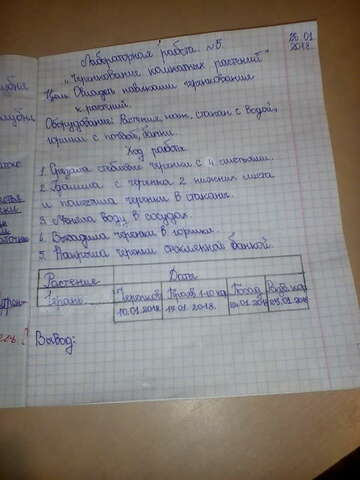 25.01
2018.
Лабораторная работа №5.
"Черенкование комнатных растений"
Цель: Овладеть навыками черенкования
к растений.
Оборудование: Растения, нож, стакан с водой,
горшки с почвой, банки
Ход работы
1. Срезала стеблевые черенки с 4 листьями.
2. Удалила с черенка 2 нижних листа
и поместила черенки в стаканы.
3. Меняла воду в сосудах.
4. Высадила черенки в горшки.
5. Накрыла черенки стеклянной банкой.
Растение Дата
Герань Черенков Появ 1-го ка Посад Разв ка
10.01.2018 17.01.2018.
Вывод: